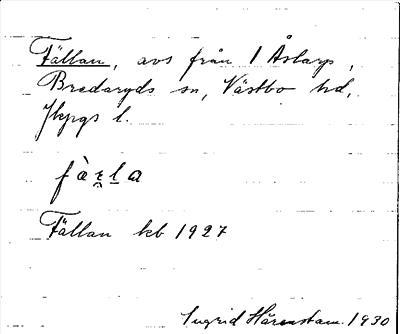 Fällan, avs från 1 Åslarp,
Bredaryds sn, Västbo hd,
Jkpgs l.
fàɛ̯la
Fällan kb 1927
Ingrid Hårenstam. 1930